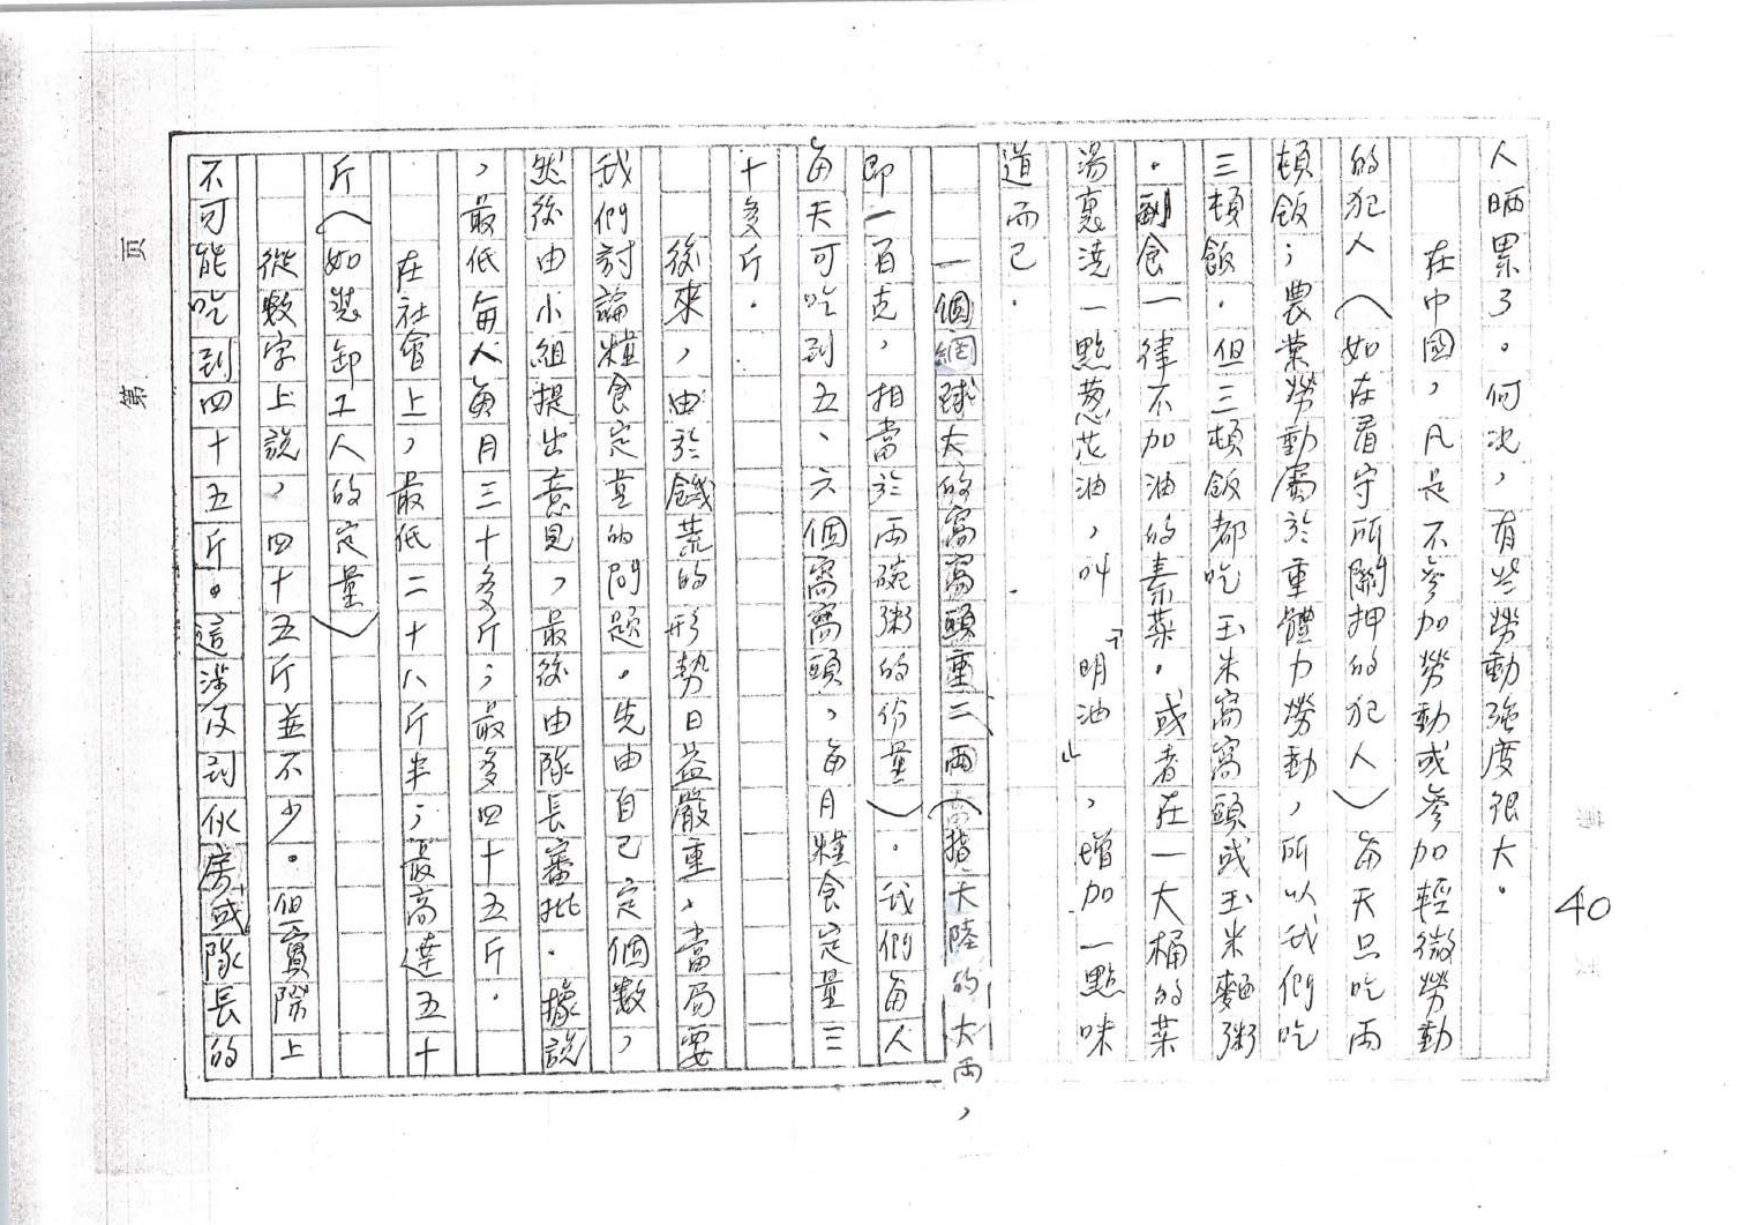 40
人晒累了。何况，有些勞動強度很大。
在中國，凡是不參加勞動或參加輕微勞動
的犯人（如在看守所關押的犯人）每天只吃兩
頓飯；農業勞動屬於重體力勞動，所以我們吃
三頓飯．但三頓飯都吃玉米窩窩頭或玉米麵粥
．副食一律不加油的素菜．或者在一大桶的菜
湯裏澆一點葱花油，叫「明油」，增加一點味
道而已．
一個網球大的窩窩頭重二兩（指大陸的大兩，
即一百克，相當於兩碗粥的份量）．我們每人
每天可吃到五、六個窩窩頭，每月糧食定量三
十多斤．
後來，由於饑荒的形勢日益嚴重，當局要
我們討論糧食定量的問題．先由自己定個數，
然後由小組提出意見，最後由隊長審批．據說
，最低每人每月三十多斤；最多四十五斤．
在社會上，最低二十八斤半；最高達五十
斤（如裝卸工人的定量）
從數字上說，四十五斤並不少。但實際上
不可能吃到四十五斤。這涉及到伙房或隊長的
第 页